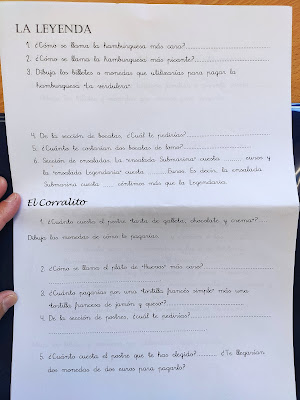 LA LEYENDA
1. ¿Cómo se llama la hamburguesa más cara?..............................
2. ¿Cómo se llama la hamburguesa más picante?..............................
3. Dibuja los billetes o monedas que utilizarías para pagar la
hamburguesa "La verdulera".
4. De la sección de bocatas, ¿Cuál te pedirías?..............................
5. ¿Cuánto te costarían dos bocatas de lomo?..............................
6. Sección de ensaladas. La "ensalada Submarina" cuesta ........ euros y
la "ensalada Legendaria" cuesta ........ Euros. Es decir, la ensalada
Submarina cuesta ........ céntimos más que la Legendaria.
El Corralito
1. ¿Cuánto cuesta el postre "tarta de galleta, chocolate, y crema"?.....
Dibuja las monedas de cómo lo pagarías.
2. ¿Cómo se llama el plato de "Huevos" más caro?..............................
3. ¿Cuánto pagarías por una "tortilla francés simple" más una
"tortilla francesa de jamón y queso"?..............................
4. De la sección de postres, ¿cuál te pedirías?..............................
..............................
5. ¿Cuánto cuesta el postre que te has elegido?.......... ¿Te llegarían
dos monedas de dos euros para pagarlo?